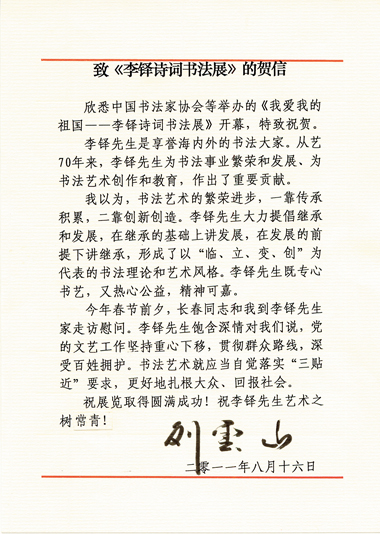 致《李铎诗词书法展》的贺信
欣悉中国书法家协会等举办的《我爱我的
祖国——李铎诗词书法展》开幕，特致祝贺。
李铎先生是享誉海内外的书法大家。从艺
70年来，李铎先生为书法事业繁荣和发展、为
书法艺术创作和教育，作出了重要贡献。
我以为，书法艺术的繁荣进步，一靠传承
积累，二靠创新创造。李铎先生大力提倡继承
和发展，在继承的基础上讲发展，在发展的前
提下讲继承，形成了以“临、立、变、创”为
代表的书法理论和艺术风格。李铎先生既专心
书艺，又热心公益，精神可嘉。
今年春节前夕，长春同志和我到李铎先生
家走访慰问。李铎先生饱含深情对我们说，党
的文艺工作坚持重心下移，贯彻群众路线，深
受百姓拥护。书法艺术就应当自觉落实“三贴
近”要求，更好地扎根大众、回报社会。
祝展览取得圆满成功！祝李铎先生艺术之
树常青！
刘云山
二零一一年八月十六日